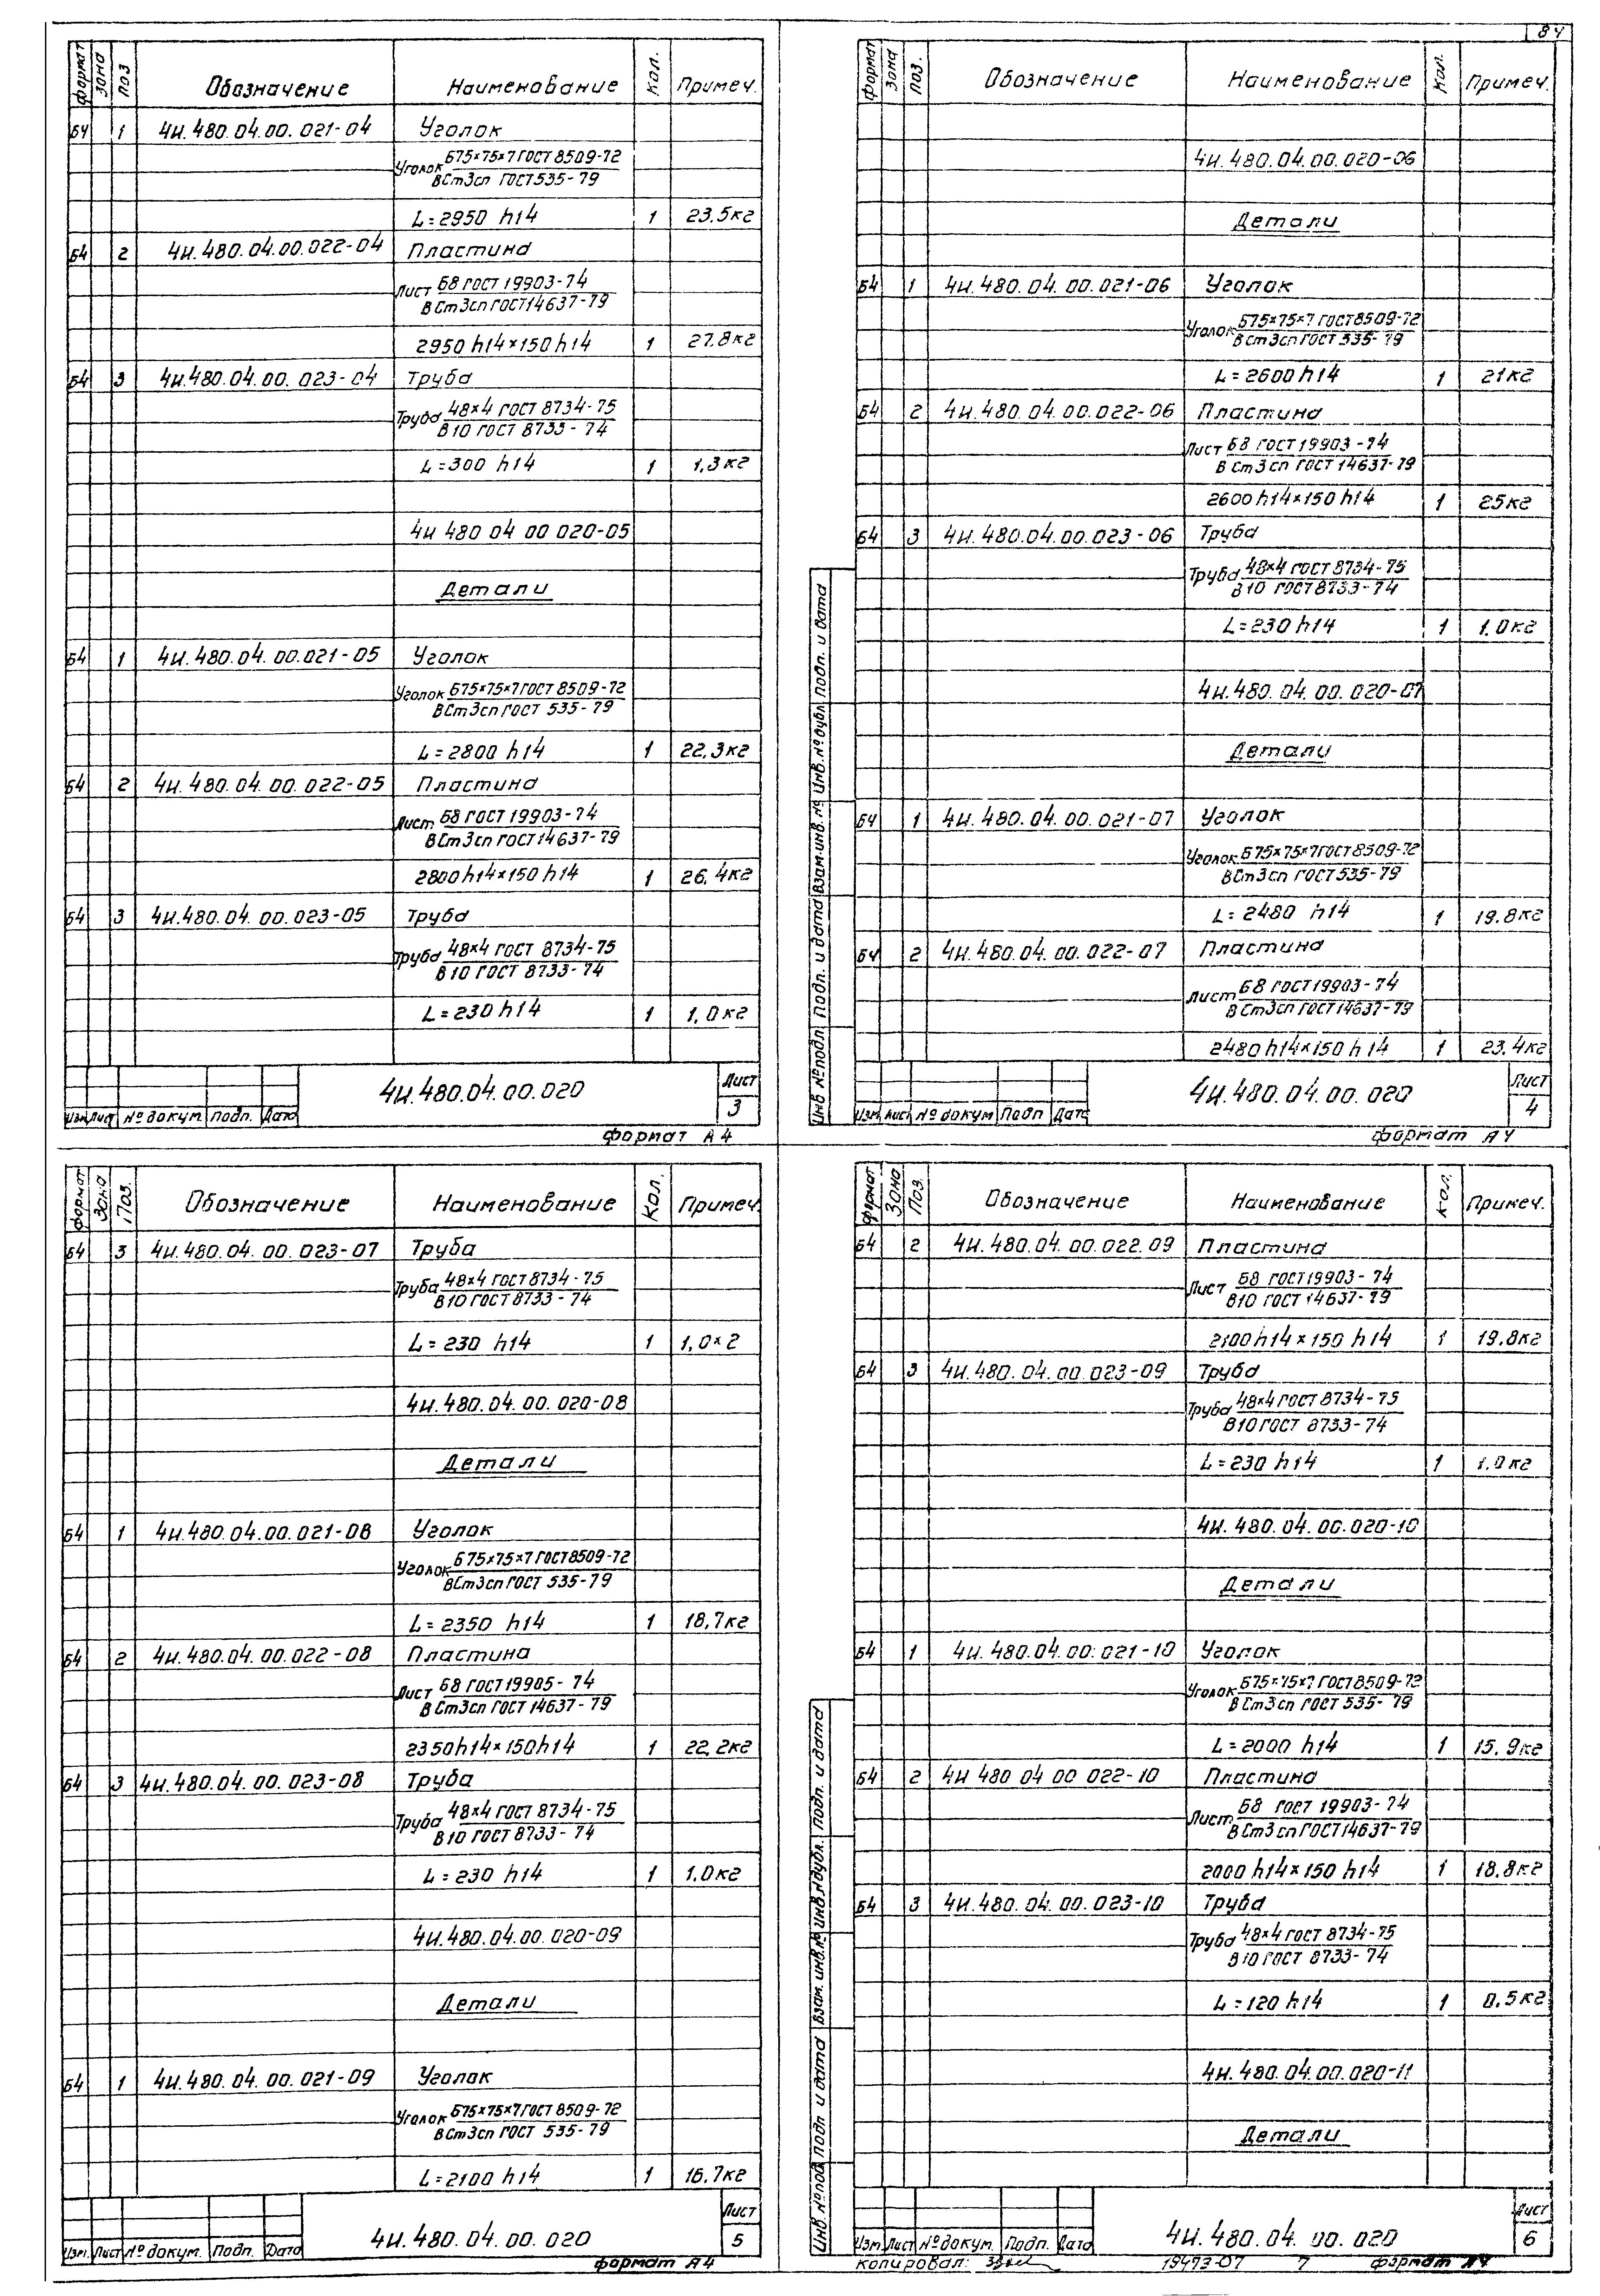 84
формат Зона Поз Обозначение Наименование Кол. Примеч.
БЧ 1 4И.480.04.00.021-04 Уголок
Уголок Б75×75×7 ГОСТ 8509-72
ВСт3сп ГОСТ 535-79
L=2950 h14 1 23.5кг
Б4 2 4И.480.04.00.022-04 Пластина
Лист Б8 ГОСТ 19903-74
ВСт3сп ГОСТ 14637-79
2950 h14×150 h14 1 27.8кг
Б4 3 4И.480.04.00.023-04 Труба
Труба 48×4 ГОСТ 8734-75
В10 ГОСТ 8733-74
L=300 h14 1 1,3кг
4И 480 04 00 020-05
Детали
Б4 1 4И.480.04.00.021-05 Уголок
Уголок Б75×75×7 ГОСТ 8509-72
ВСт3сп ГОСТ 535-79
L=2800 h14 1 22,3кг
Б4 2 4И.480.04.00.022-05 Пластина
Лист Б8 ГОСТ 19903-74
ВСт3сп ГОСТ 14637-79
2800h14×150 h14 1 26,4кг
Б4 3 4И.480.04.00.023-05 Труба
Труба 48×4 ГОСТ 8734-75
В10 ГОСТ 8733-74
L=230 h14 1 1,0кг
4И.480.04.00.020 Лист
3
Изм. Лист № докум. Подп. Дата
формат А4
формат Зона Поз. Обозначение Наименование Кол. Примеч.
4И.480.04.00.020-06
Детали
Б4 1 4И.480.04.00.021-06 Уголок
Уголок Б75×75×7 ГОСТ 8509-72
ВСт3сп ГОСТ 535-79
L=2600 h14 1 21кг
Б4 2 4И.480.04.00.022-06 Пластина
Лист Б8 ГОСТ 19903-74
ВСт3сп ГОСТ 14637-79
2600 h14×150 h14 1 25кг
Б4 3 4И.480.04.00.023-06 Труба
Труба 48×4 ГОСТ 8734-75
В10 ГОСТ 8733-74
L=230 h14 1 1.0кг
4И.480.04.00.020-07
Детали
БЧ 1 4И.480.04.00.021-07 Уголок
Уголок Б75×75×7 ГОСТ 8509-72
ВСт3сп ГОСТ 535-79
L=2480 h14 1 19.8кг
БЧ 2 4И.480.04.00.022-07 Пластина
Лист Б8 ГОСТ 19903-74
ВСт3сп ГОСТ 14637-79
2480 h14×150 h14 1 23.4кг
Инв № подл. Подп. и дата Взам.инв.№ Инв.№ дубл. Подп. и дата
4И.480.04.00.020 Лист
4
Изм. Лист № докум Подп Дата
формат А4
формат Зона Поз. Обозначение Наименование Кол. Примеч.
Б4 3 4И.480.04.00.023-07 Труба
Труба 48×4 ГОСТ 8734-75
В10 ГОСТ 8733-74
L=230 h14 1 1,0кг
4И.480.04.00.020-08
Детали
Б4 1 4И.480.04.00.021-08 Уголок
Уголок Б75×75×7 ГОСТ 8509-72
ВСт3сп ГОСТ 535-79
L=2350 h14 1 18,7кг
Б4 2 4И.480.04.00.022-08 Пластина
Лист Б8 ГОСТ 19905-74
ВСт3сп ГОСТ 14637-79
2350h14×150h14 1 22,2кг
Б4 3 4И.480.04.00.023-08 Труба
Труба 48×4 ГОСТ 8734-75
В10 ГОСТ 8733-74
L=230 h14 1 1.0кг
4И.480.04.00.020-09
Детали
Б4 1 4И.480.04.00.021-09 Уголок
Уголок Б75×75×7 ГОСТ 8509-72
ВСт3сп ГОСТ 535-79
L=2100 h14 1 16.7кг
4И.480.04.00.020 Лист
5
Изм. Лист № докум. Подп. Дата
формат А4
формат Зона Поз. Обозначение Наименование Кол. Примеч.
Б4 2 4И.480.04.00.022.09 Пластина
Лист Б8 ГОСТ 19903-74
В10 ГОСТ 14637-79
2100h14×150 h14 1 19.8кг
Б4 3 4И.480.04.00.023-09 Труба
Труба 48×4 ГОСТ 8734-75
В10 ГОСТ 8733-74
L=230 h14 1 1.0кг
4И.480.04.00.020-10
Детали
Б4 1 4И.480.04.00.021-10 Уголок
Уголок Б75×75×7 ГОСТ 8509-72
ВСт3сп ГОСТ 535-79
L=2000 h14 1 15.9кг
Б4 2 4И 480 04 00 022-10 Пластина
Лист Б8 ГОСТ 19903-74
ВСт3сп ГОСТ 14637-79
2000 h14×150 h14 1 18.8кг
Б4 3 4И.480.04.00.023-10 Труба
Труба 48×4 ГОСТ 8734-75
В10 ГОСТ 8733-74
L=120 h14 1 0.5кг
4И.480.04.00.020-11
Детали
Инв. № подл Подп и дата Взам. инв.№ Инв.№ дубл. Подп. и дата
4И.480.04.00.020 Лист
6
Изм. Лист № докум. Подп. Дата
копировал: 19473-07 7 формат А4